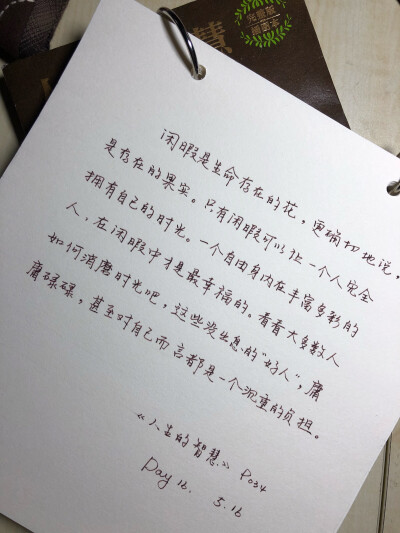 慧
闲暇是生命存在的花，更确切地说，
是存在的果实。只有闲暇可以让一个人完全
拥有自己的时光。一个自由自内在丰富多彩的
人，在闲暇中才是最幸福的。看看大多数人
如何消磨时光吧，这些没出息的“好人”，庸
庸碌碌，甚至对自己而言都是一个沉重的负担。
《人生的智慧》 P034
Day 16. 5.16